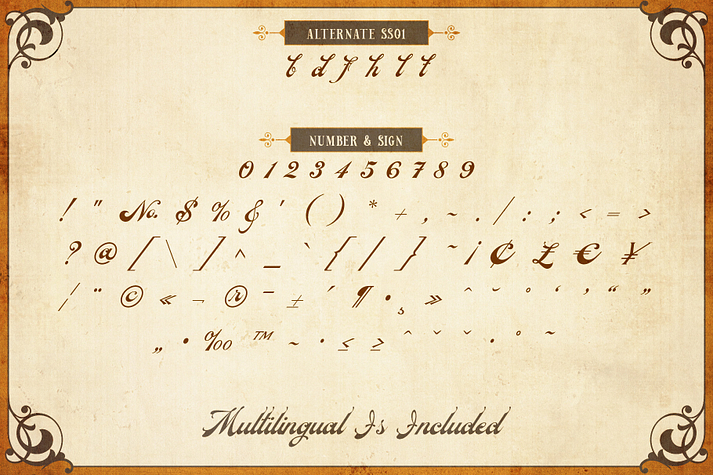 ALTERNATE SS01
b d f h l t
NUMBER & SIGN
0 1 2 3 4 5 6 7 8 9
! " No. $ % & ' ( ) * + , ~ . / : ; < = >
? @ [ \ ] ^ _ ` { | } ~ ¡ ¢ £ € ¥
¦ ¨ © « ¬ ® ¯ ± ´ ¶ • ¸ » ˆ ˇ ° ‘ ’ “ ”
„ • ‰ ™ ~ · ≤ ≥ ˆ ˇ ˘ . ° ~
Multilingual Is Included